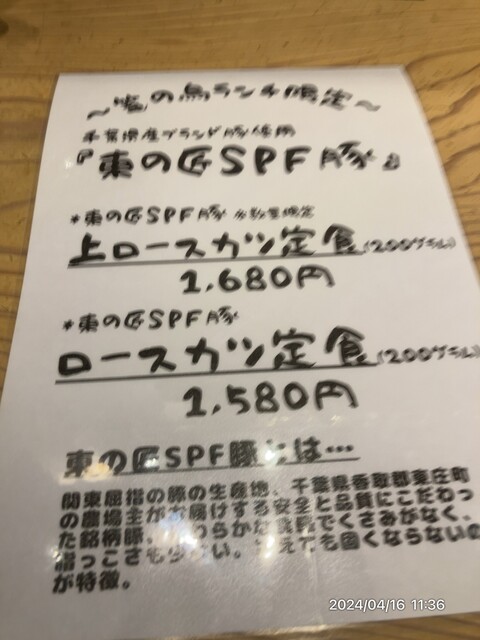 の鳥ランチ限定～
千葉県産ブランド豚使用
『東の匠SPF豚』
*東の匠SPF豚 ※数量限定
上ロースカツ定食(200グラム)
1,680円
*東の匠SPF豚
ロースカツ定食(200グラム)
1,580円
東の匠SPF豚とは…
関東屈指の豚の生産地、千葉県香取郡東庄町
の農場主がお届けする安全と品質にこだわっ
た銘柄豚。やわらかな食感でくさみがなく、
脂っこさも少ない。冷えても固くならないの
が特徴。
2024/04/16 11:36